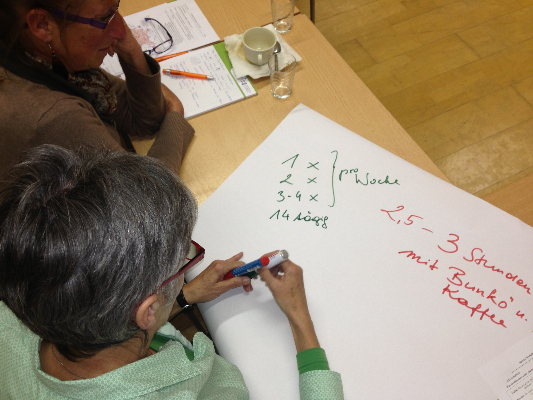 1 x
2 x
3-4 x
pro Woche
14 tägg
2,5 - 3 Stunden
mit "Bunkó" u.
Kaffee